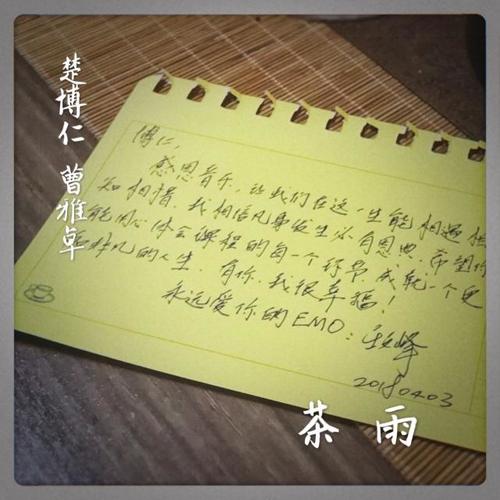 楚博仁 曹雅卓
博仁，
感恩音乐，让我们在这一生能相遇相
知相惜．我相信凡事发生必有恩典．希望你
能用心体会课程的每一个细节．成就一个更
非凡的人生．有你．我很幸福！
永远爱你的EMO：
20180403
茶 雨